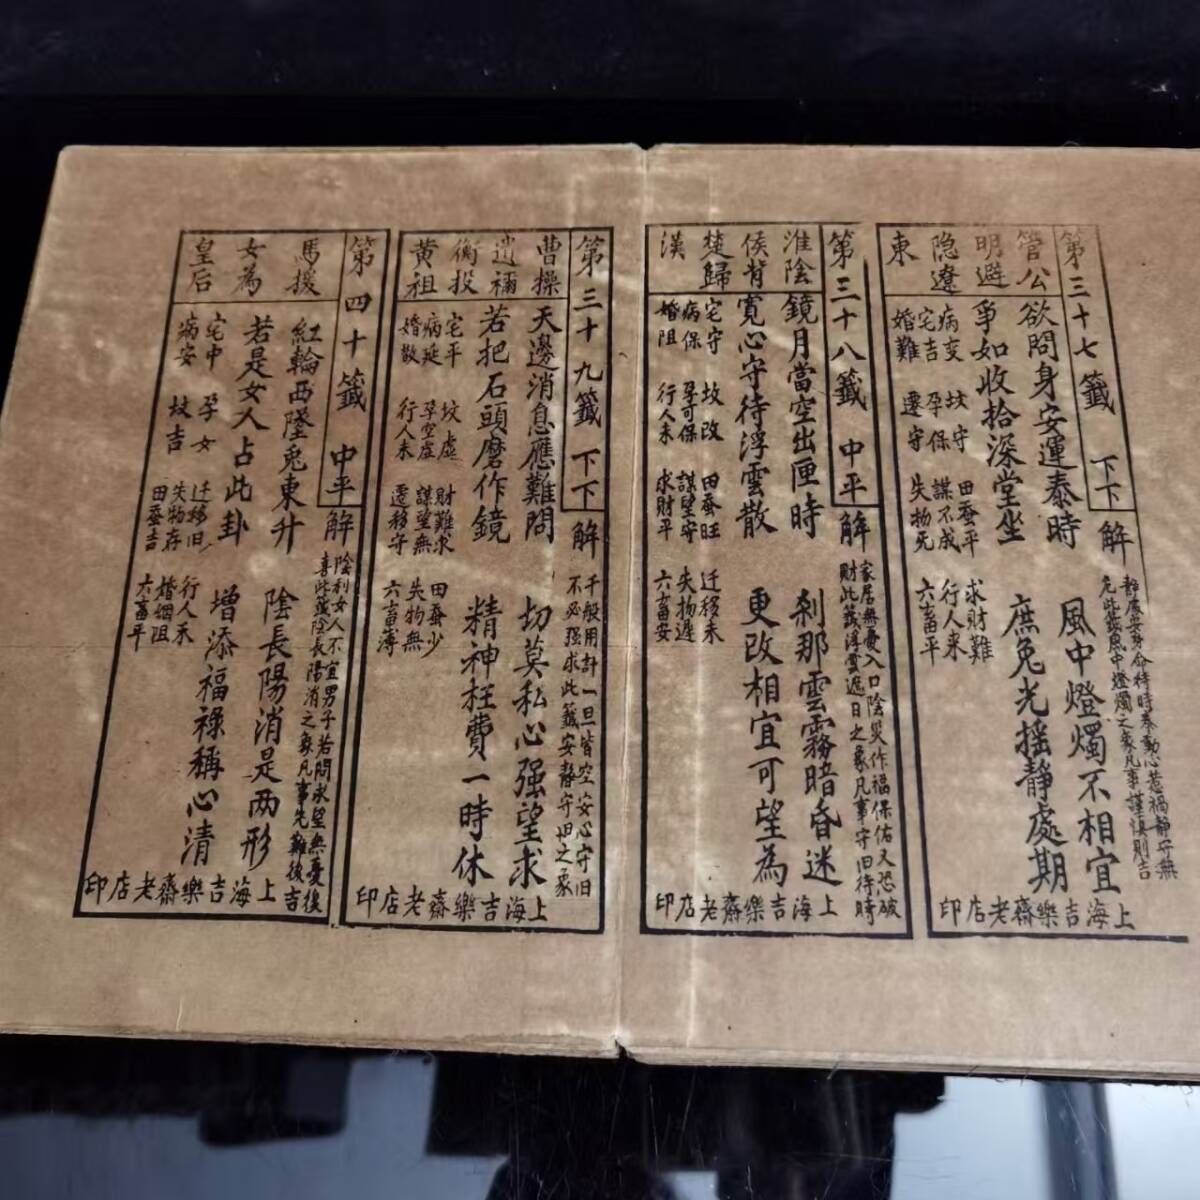 第三十七籤 下下
管公
明避
隐遼
東
欲問身安運泰時 風中燈燭不相宜
爭如收拾深堂坐 庶免光摇靜處期
病变 坟守 田蚕平 求財難
宅吉 孕保 謀不成 行人来
婚難 遷守 失物死 六畜平
解
靜慮安身命待時奉動心惹禍靜守無
危此籤風中燈燭之象凡事謹慎則吉
上海吉樂齋老店印
第三十八籤 中平
淮陰
侯背
楚歸
漢
鏡月當空出匣時 刹那雲霧暗昏迷
寬心守待浮雲散 更改相宜可望為
宅守 坟改 田蚕旺 迁移未
病保 孕可保 謀望守 失物遲
婚阻 行人未 求財平 六畜安
解
家居無憂入口陰災作福保佑又恐破
財此籤浮雲遮日之象凡事守旧待時
上海吉樂齋老店印
第三十九籤 下下
曹操
逍禰
衡投
黄祖
天邊消息應難問 切莫私心强望求
若把石頭磨作鏡 精神枉費一時休
宅平 坟虚 財難求 田蚕少
病延 孕空虚 謀望無 失物無
婚散 行人未 遷移守 六畜薄
解
千般用計一旦皆空安心守旧
不必强求此籤安靜守旧之象
上海吉樂齋老店印
第四十籤 中平
馬援
女為
皇后
紅輪西墜兎東升 陰長陽消是两形
若是女人占此卦 增添福禄稱心清
宅中 孕女 迁移旧 行人未
病安 坟吉 失物存 婚姻阻
田蚕吉 六畜平
解
陰利女人不宜男子若問求望無憂後
喜此籤陰長陽消之象凡事先難後吉
上海吉樂齋老店印